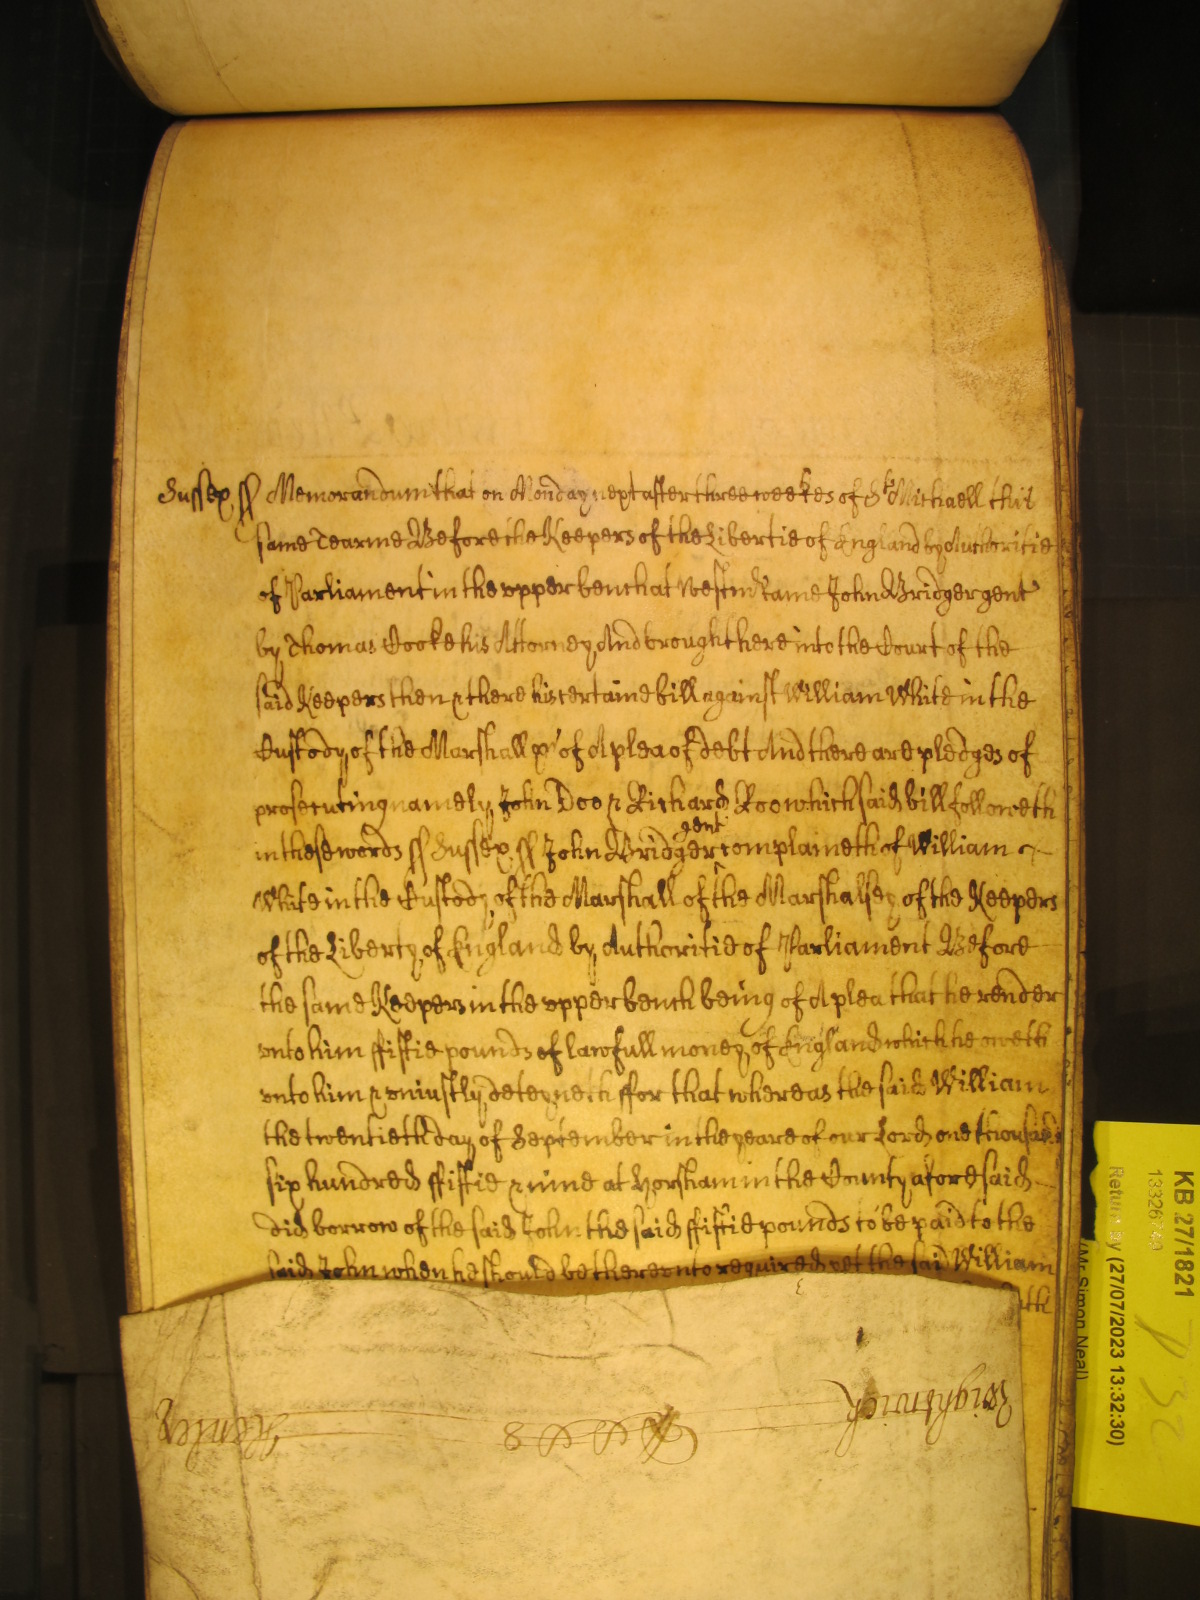 Sussex ss Memorandum that on Monday next after three weekes of St Michaell this
same Tearme Before the Keepers of the Libertie of England by Authoritie
of Parliament in the upper bench at Westmr Came John Bridger gent
by Thomas Cooke his Attorney And brought here into the Court of the
said Keepers then & there his certaine bill against William White in the
Custody of the Marshall &c of A plea of debt And there are pledges of
prosecuting namely John Doo & Richard Roo which said bill followeth
in these words ss Sussex ss John Bridger gent complaineth of William
White in the Custody of the Marshall of the Marshalsey of the Keepers
of the Liberty of England by Authoritie of Parliament Before
the same Keepers in the upper bench being of A plea that he render
vnto him ffiftie pounds of lawfull money of England which he oweth
vnto him & vniustly deteyneth ffor that whereas the said William
the twentieth day of September in the yeare of our Lord one thousand
six hundred ffiftie & nine at Horsham in the County aforesaid
did borrow of the said John the said ffiftie pounds to be paid to the
said John when he should be therevnto required yet the said William
Wightwick
Henley
KB 27/1821
Return by (27/07/2023 13:32:30)
(Mr Simon Neal)